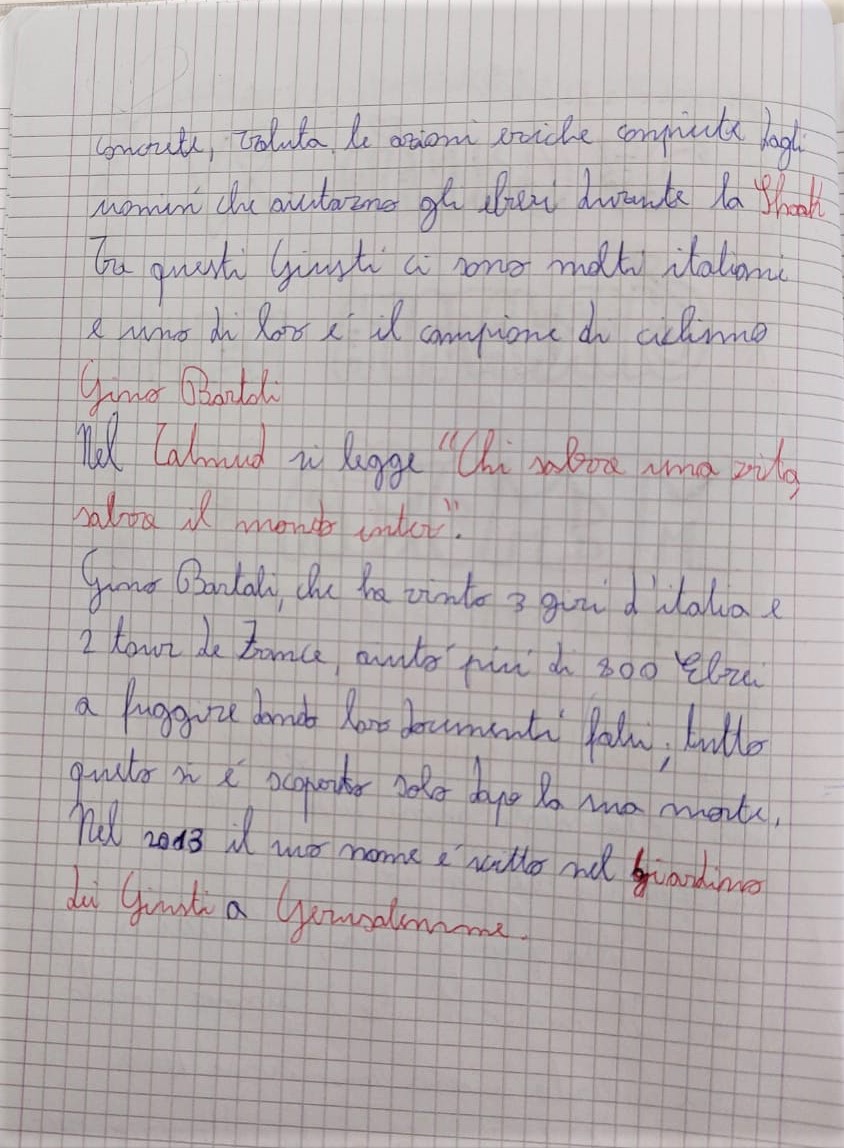 concrete, valuta le azioni eroiche compiute dagli
uomini che aiutarno gli ebrei durante la Shoah
Tra questi Giusti ci sono molti italiani
e uno di loro è il campione di ciclismo
Gino Bartali
Nel Talmud si legge "Chi salva una vita,
salva il mondo inter".
Gino Bartali, che ha vinto 3 giri d'italia e
2 tour de France, aiutò più di 800 Ebrei
a fuggire dando loro documenti falsi; tutto
questo si è scoperto solo dopo la sua morte.
Nel 2013 il suo nome è scritto nel giardino
dei Giusti a Gerusalemme.